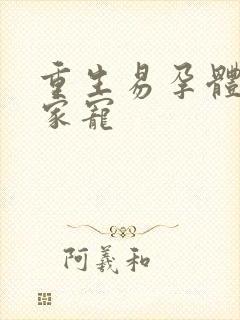 重生易孕體
家寵
阿義和